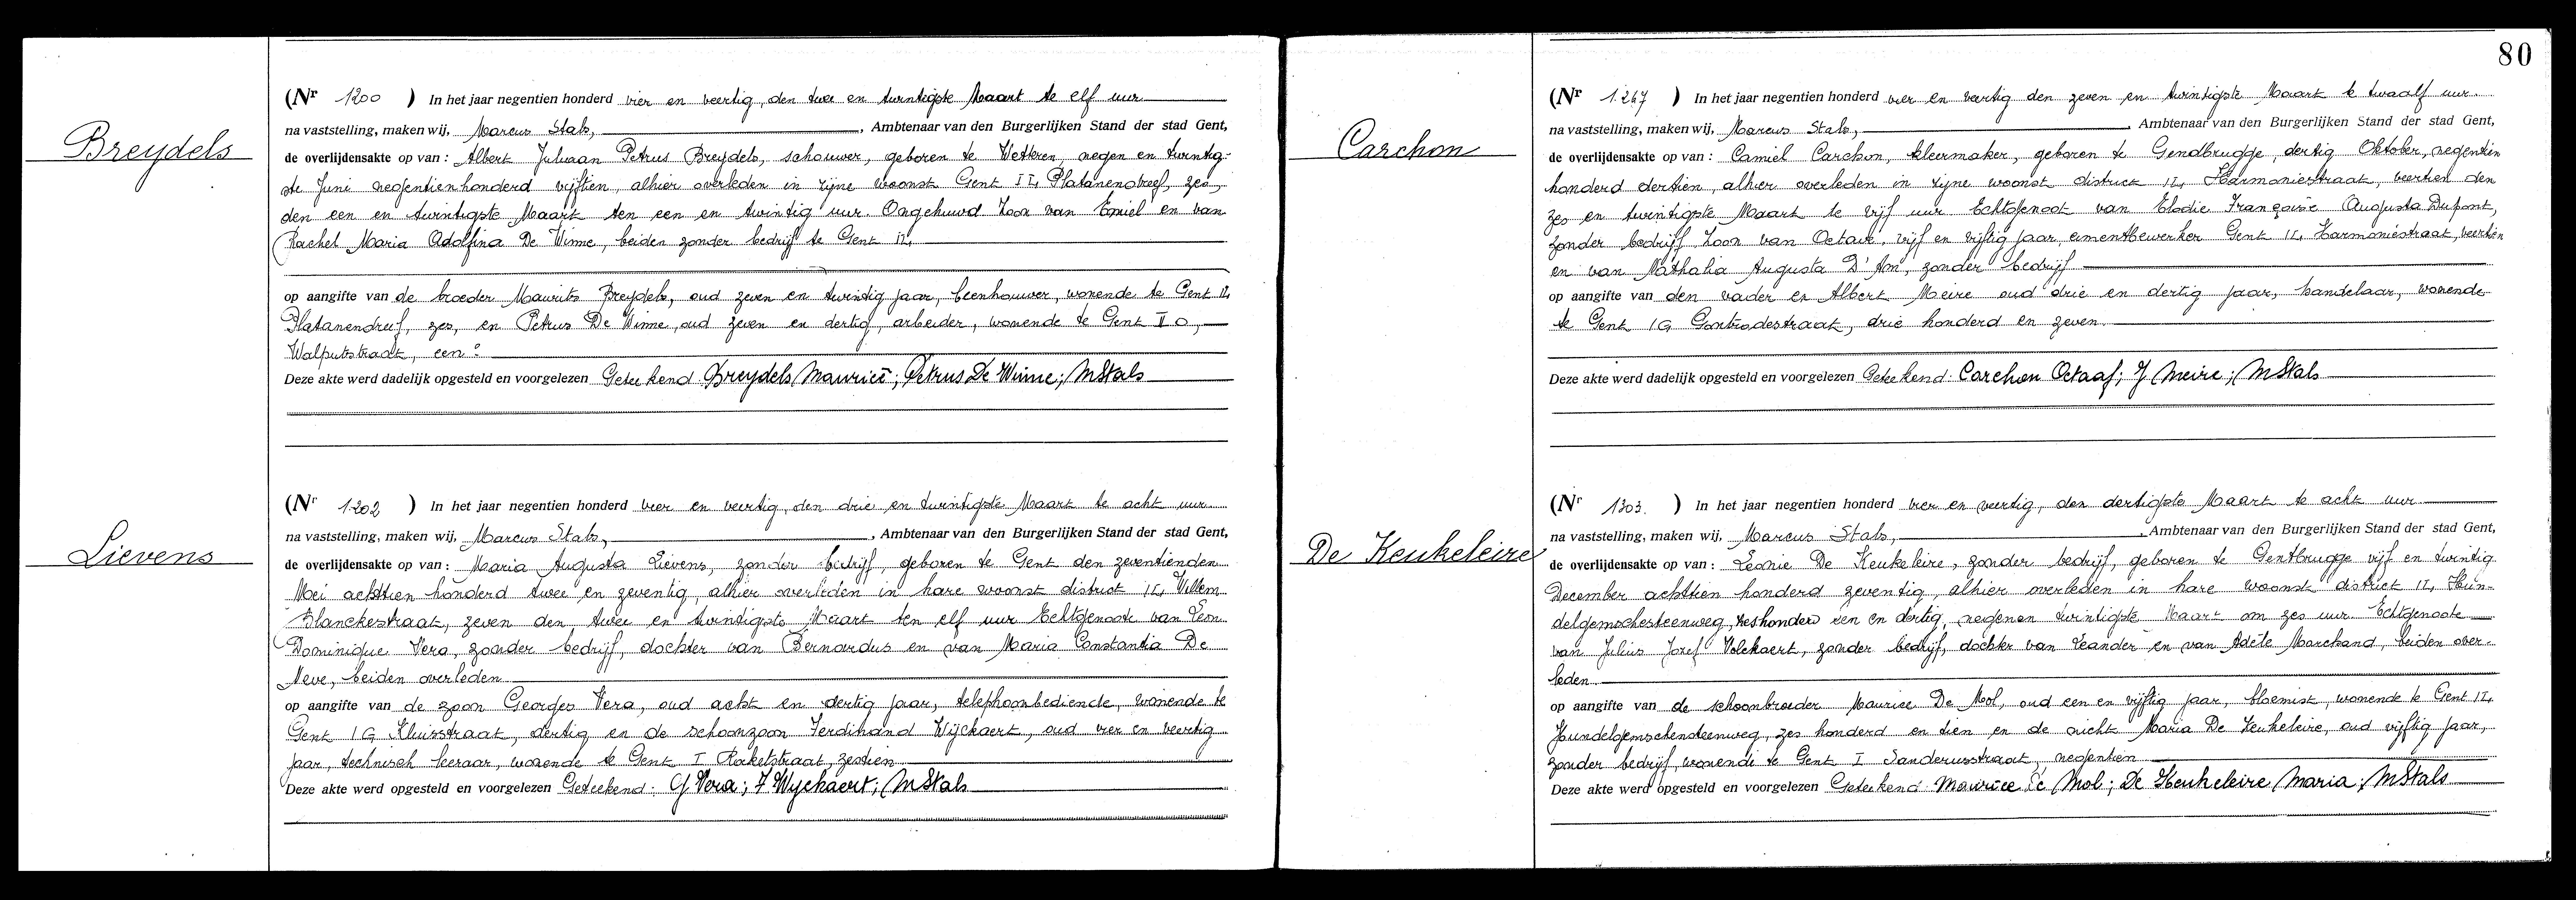 Breydels
(Nr 1200 ) In het jaar negentien honderd vier en veertig, den twee en twintigste Maart te elf uur
na vaststelling, maken wij, Marcus Stals, , Ambtenaar van den Burgerlijken Stand der stad Gent,
de overlijdensakte op van : Albert Juliaan Petrus Breydels, schouwer, geboren te Wetteren, negen en twintig-
ste Juni negentienhonderd vijftien, alhier overleden in zijne woonst Gent II, Platanendreef, zes,
den een en twintigste Maart ten een en twintig uur. Ongehuwd Zoon van Emiel en van
Rachel Maria Adolfina De Winne, beiden zonder bedrijf te Gent II,
op aangifte van de broeder Maurits Breydels, oud zeven en twintig jaar, beenhouwer, wonende te Gent II,
Platanendreef, zes, en Petrus De Winne, oud zeven en dertig, arbeider, wonende te Gent II O,
Walputstraat, een.
Deze akte werd dadelijk opgesteld en voorgelezen Geteekend Breydels Maurice; Petrus De Winne; MStals
Lievens
(Nr 1202 ) In het jaar negentien honderd vier en veertig, den drie en twintigste Maart te acht uur
na vaststelling, maken wij, Marcus Stals, , Ambtenaar van den Burgerlijken Stand der stad Gent,
de overlijdensakte op van : Maria Augusta Lievens, zonder bedrijf, geboren te Gent den zeventienden
Mei achttien honderd twee en zeventig, alhier overleden in hare woonst district II, Willem
Blanckestraat, zeven den twee en twintigste Maart ten elf uur Echtgenoote van Leon
Dominique Vera, zonder bedrijf, dochter van Bernardus en van Maria Constantia De
Neve, beiden overleden
op aangifte van de zoon Georges Vera, oud acht en dertig jaar, telephoonbediende, wonende te
Gent IG Kluisstraat, dertig en de schoonzoon Ferdinand Wijckaert, oud vier en veertig
jaar, technisch leeraar, wonende te Gent I Raketstraat, zestien
Deze akte werd opgesteld en voorgelezen Geteekend: G Vera; F Wyckaert; MStals
80
Carchon
(Nr 1267 ) In het jaar negentien honderd vier en veertig den zeven en twintigste Maart te twaalf uur
na vaststelling, maken wij, Marcus Stals, , Ambtenaar van den Burgerlijken Stand der stad Gent,
de overlijdensakte op van : Camiel Carchon, kleermaker, geboren te Gendbrugge, dertig Oktober, negentien
honderd dertien, alhier overleden in zijne woonst district II, Harmoniestraat, veertien den
zes en twintigste Maart te vijf uur Echtgenoot van Elodie Françoise Augusta Dupont,
zonder bedrijf Zoon van Octave, vijf en vijftig jaar, cementbewerker Gent II, Harmoniestraat, veertien
en van Nathalia Augusta D'Am, zonder bedrijf
op aangifte van den vader en Albert Meire oud drie en dertig jaar, handelaar, wonende
te Gent IG Gontrodestraat, drie honderd en zeven.
Deze akte werd dadelijk opgesteld en voorgelezen Geteekend: Carchon Octaaf; J Meire; MStals
De Keukeleire
(Nr 1303. ) In het jaar negentien honderd vier en veertig, den dertigste Maart te acht uur
na vaststelling, maken wij, Marcus Stals, , Ambtenaar van den Burgerlijken Stand der stad Gent,
de overlijdensakte op van : Leonie De Keukeleire, zonder bedrijf, geboren te Gentbrugge vijf en twintig
December achttien honderd zeventig, alhier overleden in hare woonst district II, Hun-
delgemschesteenweg, zeshonderd een en dertig, negen en twintigste Maart om zes uur Echtgenoote
van Julius Jozef Volckaert, zonder bedrijf, dochter van Leander en van Adèle Marchand, beiden over-
leden.
op aangifte van de schoonbroeder Maurice De Mol, oud een en vijftig jaar, bloemist, wonende te Gent II,
Hundelgemschensteenweg, zes honderd en tien en de nicht Maria De Keukeleire, oud vijftig jaar,
zonder bedrijf, wonende te Gent I Sanderusstraat, negentien
Deze akte werd opgesteld en voorgelezen Geteekend Maurice De Mol; De Keukeleire Maria; MStals